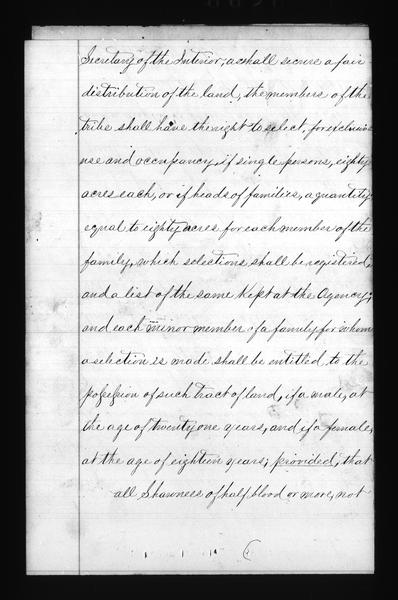 Secretary of the Interior, as shall secure a fair
distribution of the land, the members of the
tribe shall have the right to select, for exclusive
use and occupancy, if single persons, eighty
acres each, or if heads of families, a quantity
equal to eighty acres for each member of the
family, which selections shall be registered,
and a list of the same Kept at the Agency;
and each minor member of a family for whom
a selection is made shall be entitled to the
possession of such tract of land, if a male, at
the age of twenty one years, and if a female,
at the age of eighteen years; provided, that
all Shawnees of half blood or more, not